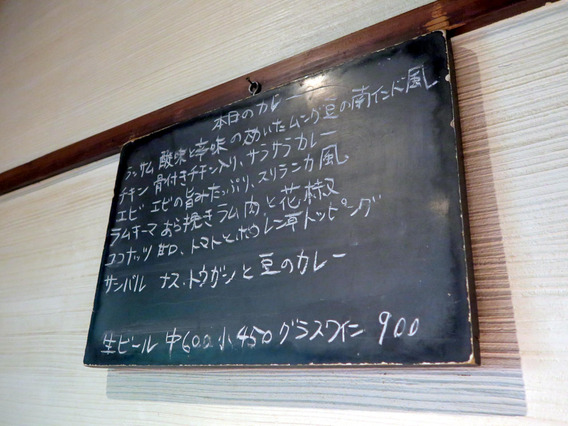 本日のカレー
ラッサム 酸味と辛味の効いたムング豆の南インド風
チキン 骨付きチキン入り、サラサラカレー
エビ エビの旨みたっぷり、スリランカ風
ラムキーマ あら挽きラム肉と花椒
ココナッツ 甘口、トマトとホウレン草トッピング
サンバル ナス、トウガンと豆のカレー
生ビール 中600 小450 グラスワイン 900